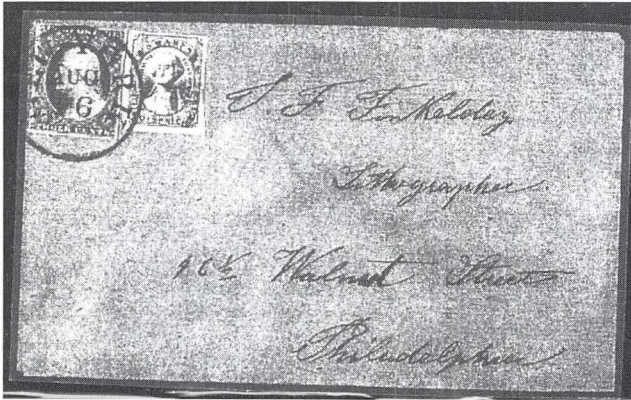 AUG
6
J F Finkelday
Lithographer
46½ Walnut Street
Philadelphia